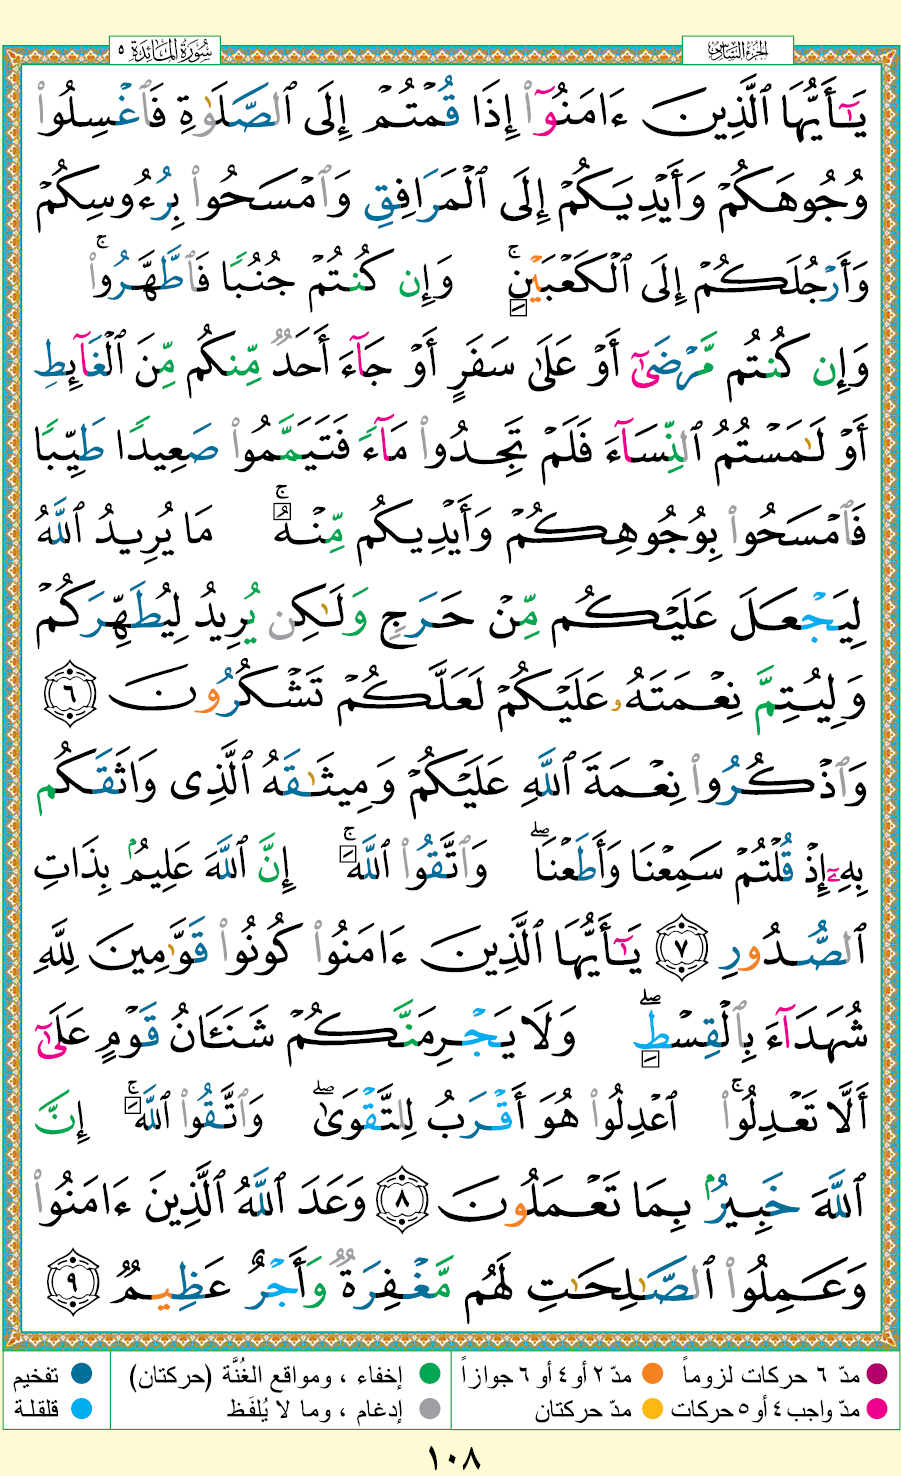 الجزء السادس
سورة المائدة ٥
يَـٰٓأَيُّهَا ٱلَّذِينَ ءَامَنُوٓا۟ إِذَا قُمْتُمْ إِلَى ٱلصَّلَوٰةِ فَٱغْسِلُوا۟
وُجُوهَكُمْ وَأَيْدِيَكُمْ إِلَى ٱلْمَرَافِقِ وَٱمْسَحُوا۟ بِرُءُوسِكُمْ
وَأَرْجُلَكُمْ إِلَى ٱلْكَعْبَيْنِ ۚ وَإِن كُنتُمْ جُنُبًا فَٱطَّهَّرُوا۟ ۚ
وَإِن كُنتُم مَّرْضَىٰٓ أَوْ عَلَىٰ سَفَرٍ أَوْ جَآءَ أَحَدٌ مِّنكُم مِّنَ ٱلْغَآئِطِ
أَوْ لَـٰمَسْتُمُ ٱلنِّسَآءَ فَلَمْ تَجِدُوا۟ مَآءً فَتَيَمَّمُوا۟ صَعِيدًا طَيِّبًا
فَٱمْسَحُوا۟ بِوُجُوهِكُمْ وَأَيْدِيكُم مِّنْهُ ۚ مَا يُرِيدُ ٱللَّهُ
لِيَجْعَلَ عَلَيْكُم مِّنْ حَرَجٍ وَلَـٰكِن يُرِيدُ لِيُطَهِّرَكُمْ
وَلِيُتِمَّ نِعْمَتَهُۥ عَلَيْكُمْ لَعَلَّكُمْ تَشْكُرُونَ ٦
وَٱذْكُرُوا۟ نِعْمَةَ ٱللَّهِ عَلَيْكُمْ وَمِيثَـٰقَهُ ٱلَّذِى وَاثَقَكُم
بِهِۦٓ إِذْ قُلْتُمْ سَمِعْنَا وَأَطَعْنَا ۖ وَٱتَّقُوا۟ ٱللَّهَ ۚ إِنَّ ٱللَّهَ عَلِيمٌۢ بِذَاتِ
ٱلصُّدُورِ ٧ يَـٰٓأَيُّهَا ٱلَّذِينَ ءَامَنُوا۟ كُونُوا۟ قَوَّٰمِينَ لِلَّهِ
شُهَدَآءَ بِٱلْقِسْطِ ۖ وَلَا يَجْرِمَنَّكُمْ شَنَـَٔانُ قَوْمٍ عَلَىٰٓ
أَلَّا تَعْدِلُوا۟ ۚ ٱعْدِلُوا۟ هُوَ أَقْرَبُ لِلتَّقْوَىٰ ۖ وَٱتَّقُوا۟ ٱللَّهَ ۚ إِنَّ
ٱللَّهَ خَبِيرٌۢ بِمَا تَعْمَلُونَ ٨ وَعَدَ ٱللَّهُ ٱلَّذِينَ ءَامَنُوا۟
وَعَمِلُوا۟ ٱلصَّـٰلِحَـٰتِ لَهُم مَّغْفِرَةٌ وَأَجْرٌ عَظِيمٌ ٩
مدّ ٦ حركات لزوماً مدّ ٢ أو ٤ أو ٦ جوازاً إخفاء ، ومواقع الغُنَّة (حركتان) تفخيم
مدّ واجب ٤ أو ٥ حركات مدّ حركتان إدغام ، وما لا يُلفَظ قلقلة
١٠٨